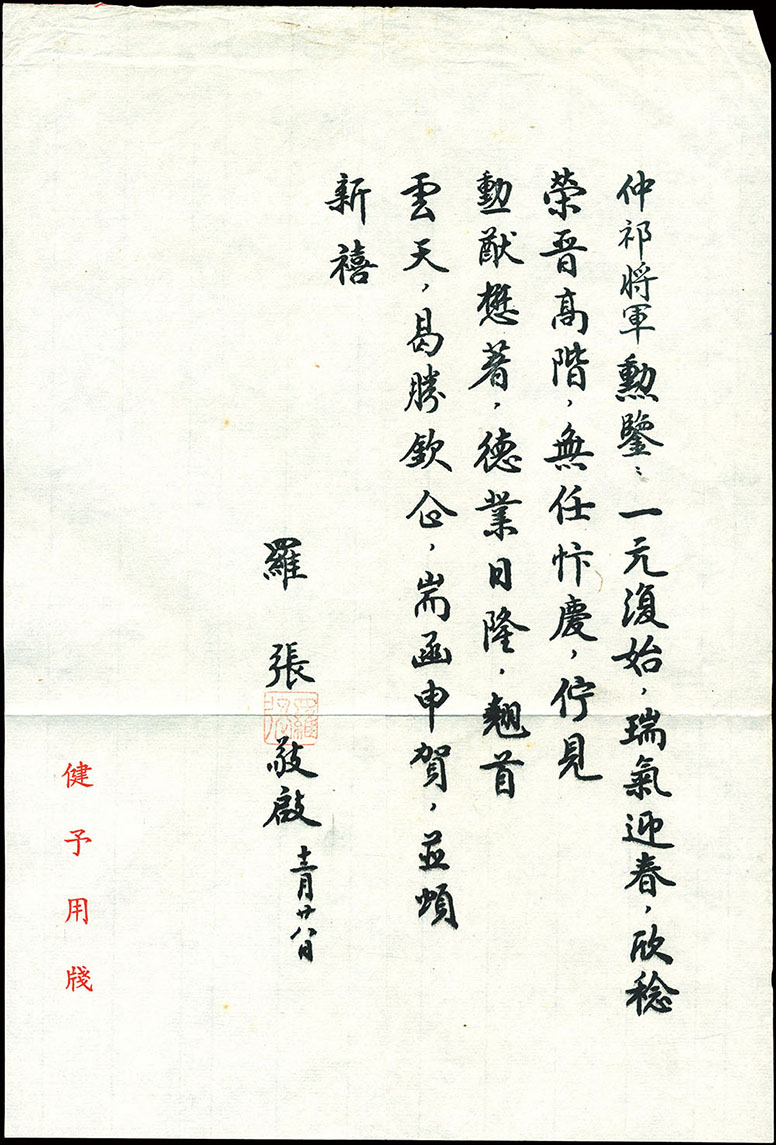 仲祁將軍勳鑒：一元復始，瑞氣迎春，欣稔
榮晉高階，無任忭慶，佇見
勳猷懋著，德業日隆，翹首
雲天，曷勝欽企，耑函申賀，並頌
新禧
羅張敬啟 十二月廿八日
健予用牋